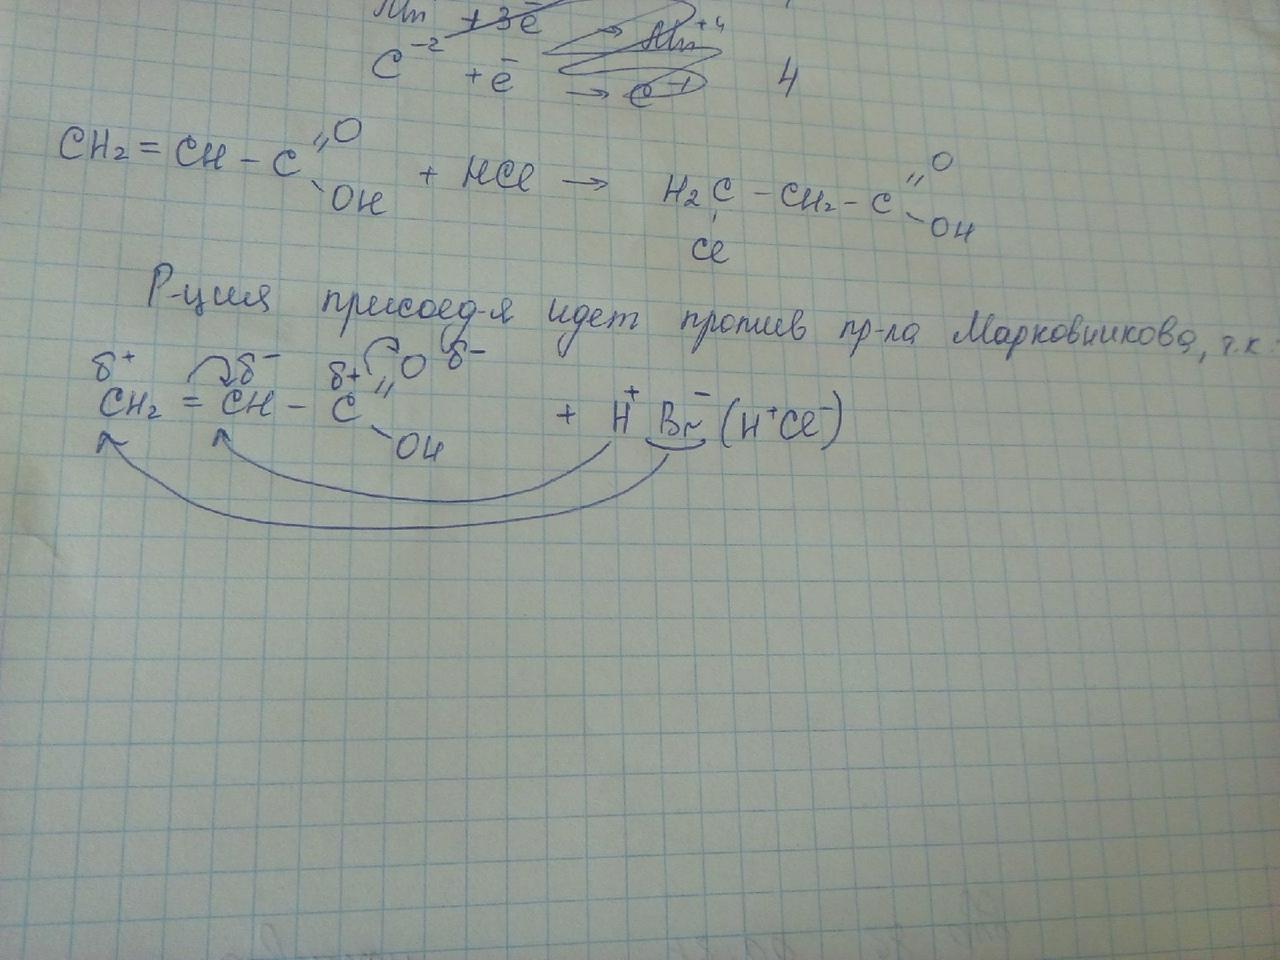 Mn +3ē → Mn⁺⁴
C⁻² +ē → C⁻¹ 4
CH₂ = CH – C =O –OH + HCl → H₂C – CH₂ – C =O –OH
Cl
Р-ция присоед-я идет против пр-ла Марковникова, т.к.
δ⁺ δ⁻ δ+ O δ⁻
CH₂ = CH – C –OH + H⁺ Br⁻ (H⁺Cl⁻)